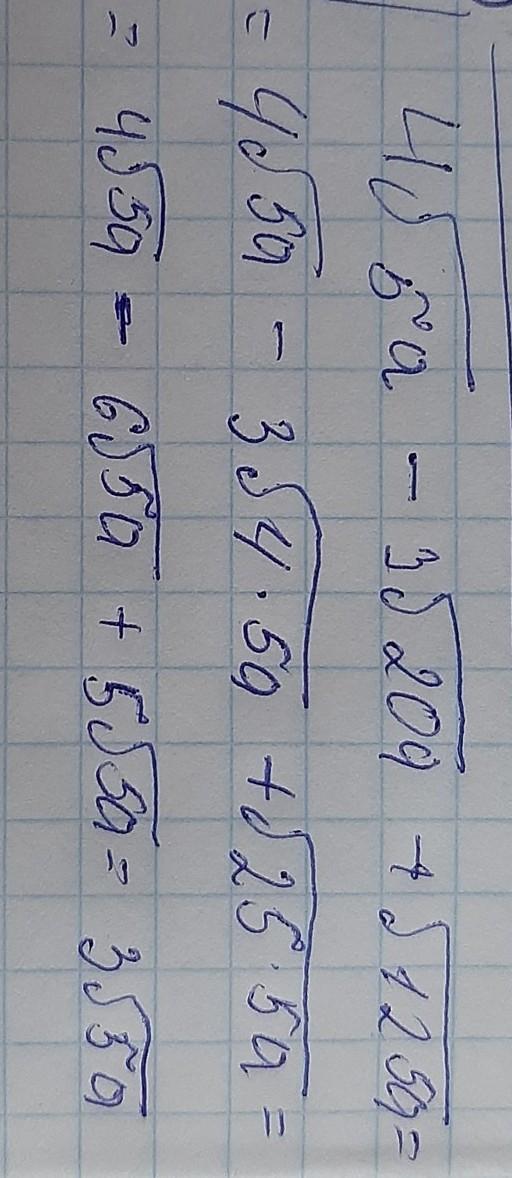 4√5a - 3√20a + √125a =
= 4√5a - 3√4·5a + √25·5a =
= 4√5a - 6√5a + 5√5a = 3√5a